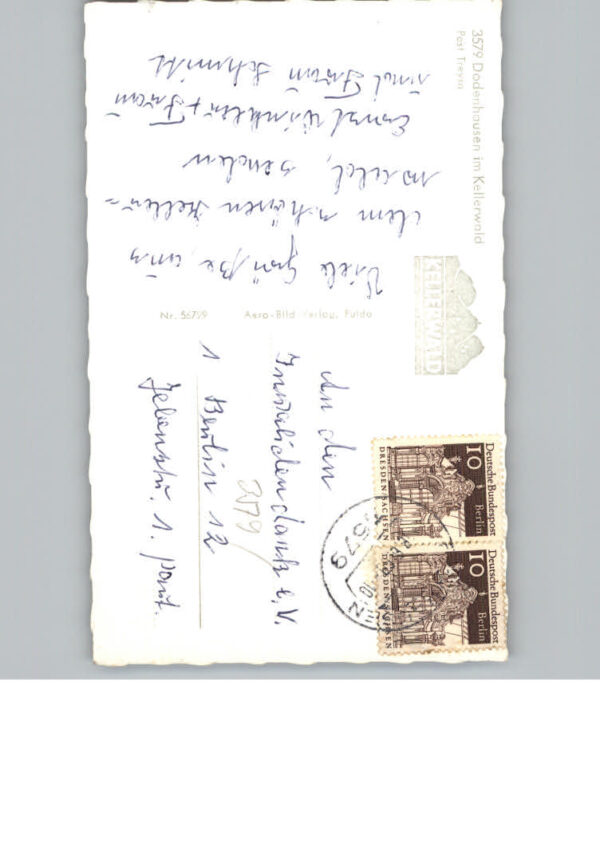 3579 Dodenhausen im Kellerwald
Post Treysa
KELLERWALD
Viele Grüße, aus
dem schönen Keller=
wald, senden
Ernst Winkler + Frau
und Frau Schmidt
Nr. 56799 Aero-Bild Verlag, Fulda
Deutsche Bundespost
Berlin
10
DRESDEN/SACHSEN
Deutsche Bundespost
Berlin
10
DRESDEN/SACHSEN
3579
An den
Invalidendank e.V.
1 Berlin 12
Jebensstr. 1. part.